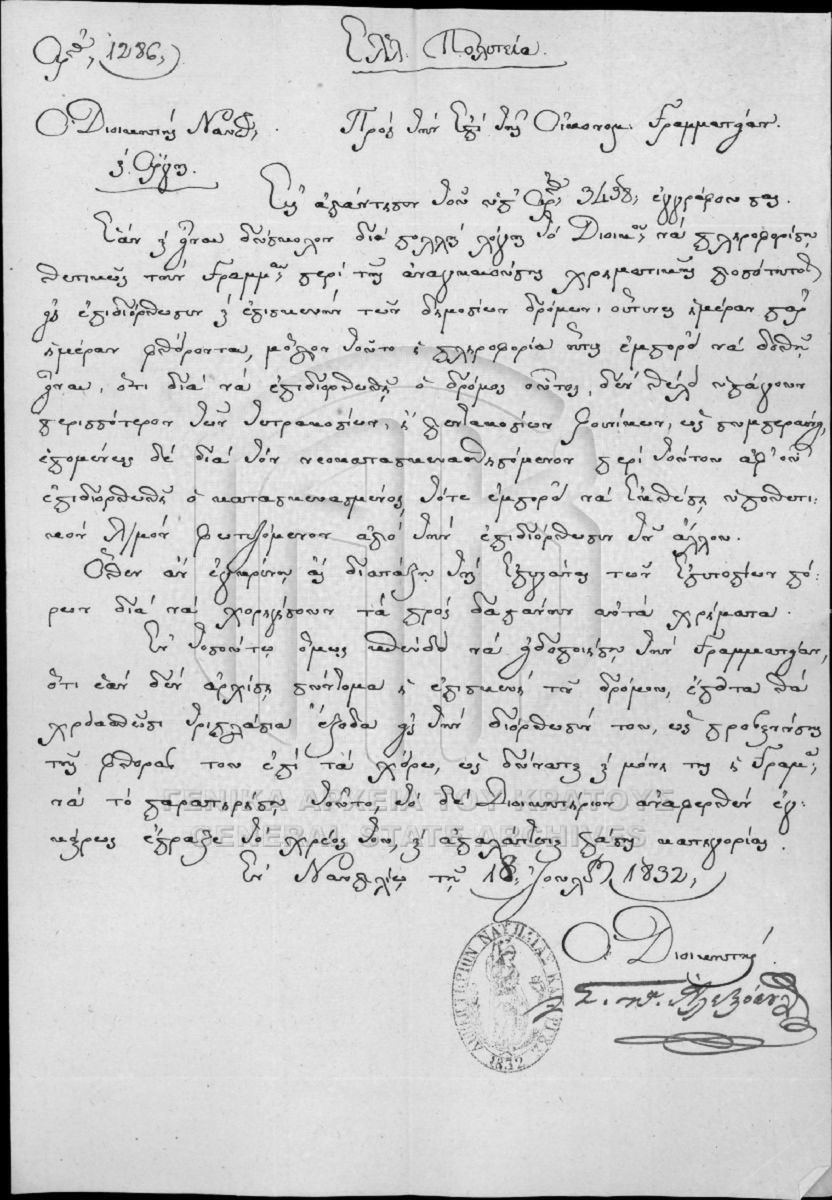 Ἀρ: 1286,
Ἑλλ. Πολιτεία.
Ὁ Διοικητὴς Ναυπλ,
Πρὸς τὴν Ἐπὶ τῆς Οἰκονομ. Γραμματείαν.
καὶ Ἄργους.
Εἰς ἀπάντησιν τοῦ ὑπ' Ἀρ: 3438, ἐγγράφου σας.
Ἐὰν καὶ ἦναι δύσκολον διὰ πολλοὺς λόγους τὸ Διοικ: νὰ πληροφορήσῃ
θετικῶς τὴν Γραμμ: περὶ τῆς ἀναγκαιούσης χρηματικῆς ποσότητος
εἰς ἐπιδιόρθωσιν καὶ ἐπισκευὴν τῶν δημοσίων δρόμων, οἵτινες ἡμέραν παρ'
ἡμέραν φθείρονται, μ' ὅλον τοῦτο ἡ πληροφορία ἥτις ἐμπορεῖ νὰ δοθῇ
εἶναι, ὅτι διὰ νὰ ἐπιδιορθωθῇ ὁ δρόμος οὗτος, δὲν θέλει ὑπάγουν
περισσότερον τῶν τετρακοσίων, ἢ πεντακοσίων Φοινίκων, ὡς συμπεραίνω,
ἑπομένως δὲ διὰ τὸν νεοκατασκευασθησόμενον περὶ τούτου ἀφ' οὗ
ἐπιδιορθωθῇ ὁ κατασκευασμένος, τότε ἐμπορεῖ νὰ ἐκθέσῃ ὑποθετι-
κὸν λ/μὸν φωτιζόμενον ἀπὸ τὴν ἐπιδιόρθωσιν τοῦ ἄλλου.
Ὅθεν ἂν ἐγκρίνῃ, ἂς διατάξῃ τοὺς Ἐπιστάτας τῶν Ἐγχωρίων πό-
ρων διὰ νὰ χορηγήσουν τὰ πρὸς δαπάνην αὐτὰ χρήματα.
Ἐν τοσούτῳ ὅμως σπεύδω νὰ εἰδοποιήσω τὴν Γραμματείαν,
ὅτι ἐὰν δὲν ἀρχίσῃ σύντομα ἡ ἐπισκευὴ τοῦ δρόμου, ἔπειτα θὰ
χρειασθῶσι τριπλάσια ἔξοδα εἰς τὴν διόρθωσίν του, ὡς προξενήσῃς
τῆς φθορᾶς του ἐπὶ τὰ χείρω, ὡς δύναται καὶ μόνη της ἡ Γραμ:
νὰ τὸ παρατηρήσῃ τοῦτο, τὸ δὲ Διοικητήριον ἀναφερθὲν ἐγ-
καίρως ἔπραξε τὸ χρέος του, καὶ ἀπαλάττεται πάσης κατηγορίας.
Ἐν Ναυπλίῳ τῇ 18, Ἰουλίου 1832,
Ὁ Διοικητής.
ΔΙΟΙΚΗΤΗΡΙΟΝ ΝΑΥΠΛΙΑΣ ΚΑΙ ΑΡΓΟΥΣ
1832
ΓΕΝΙΚΑ ΑΡΧΕΙΑ ΤΟΥ ΚΡΑΤΟΥΣ
GENERAL STATE ARCHIVES